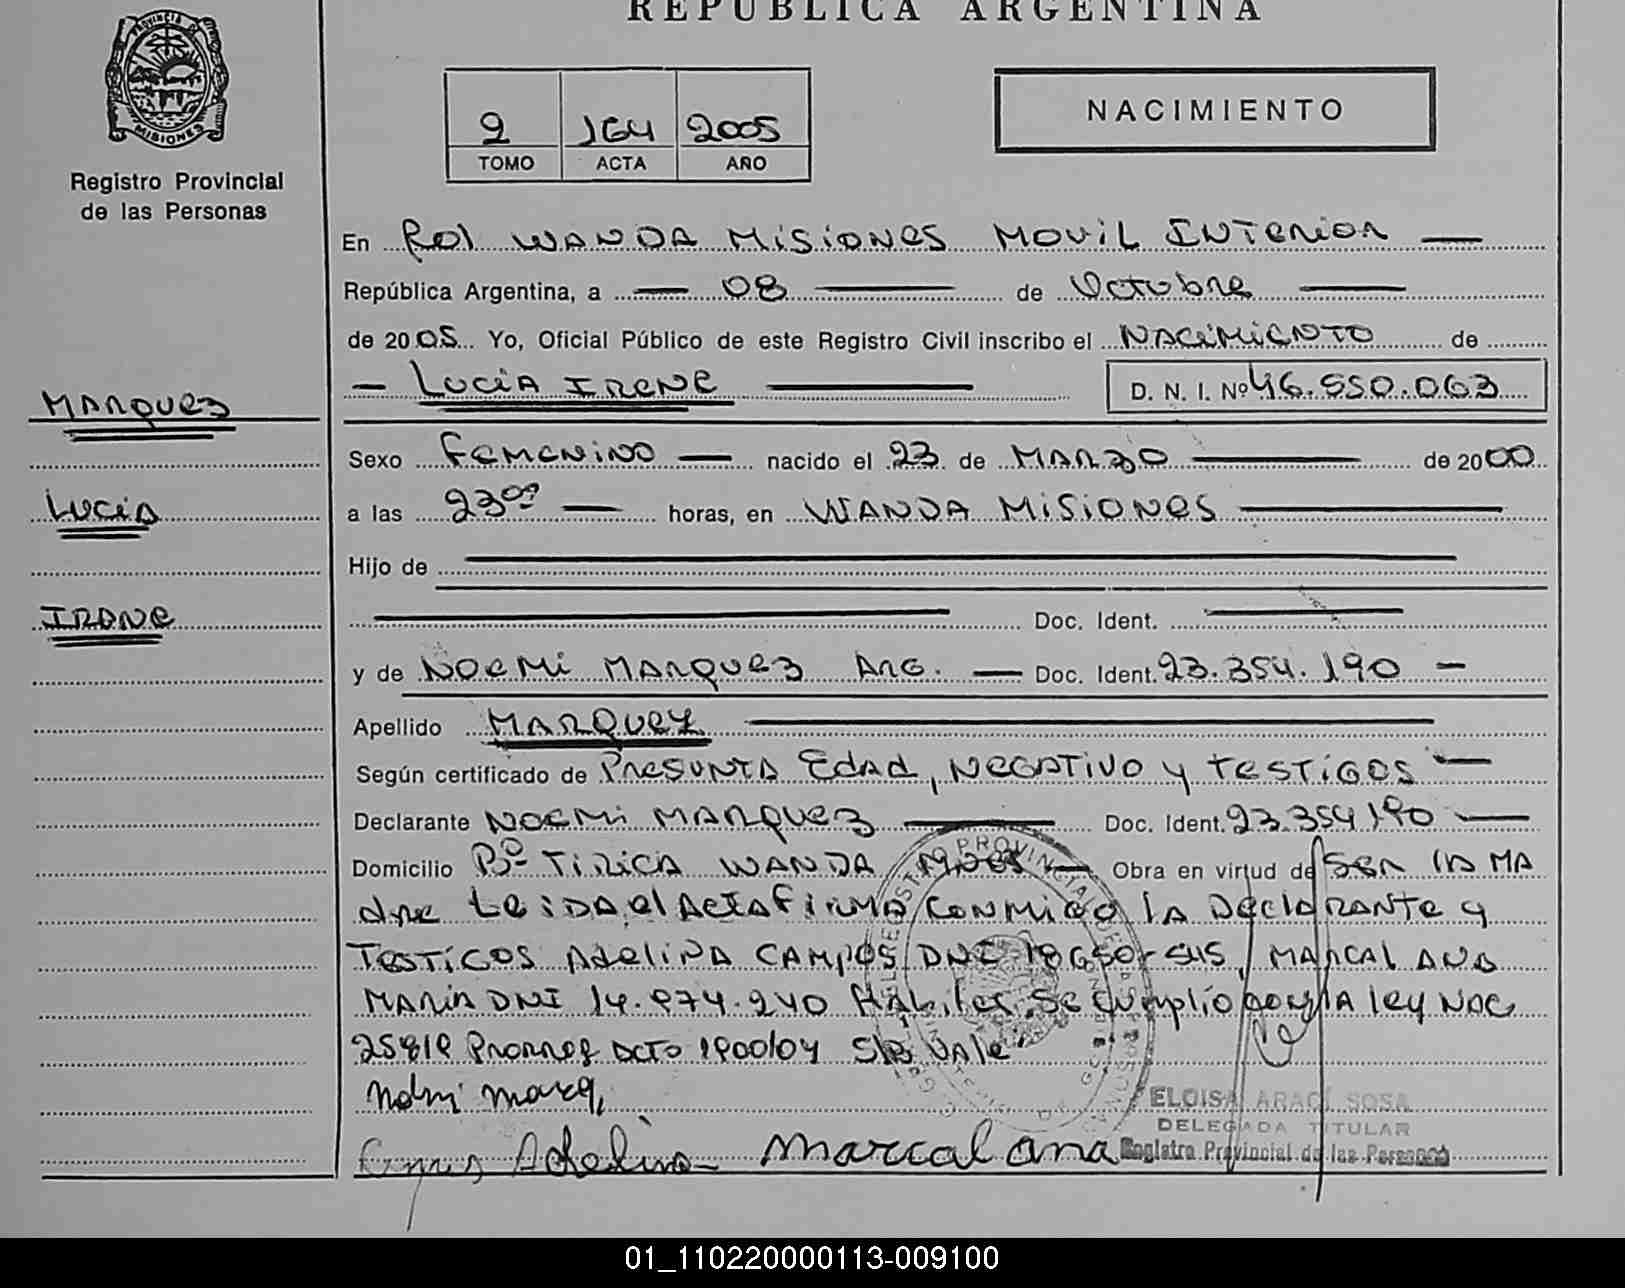 REPUBLICA ARGENTINA
PROVINCIA DE
MISIONES
Registro Provincial
de las Personas
2 164 2005
TOMO ACTA AÑO
NACIMIENTO
En Rol WANDA MISIONES MOVIL INTERIOR
República Argentina, a 08 de Octubre
de 2005 Yo, Oficial Público de este Registro Civil inscribo el NACIMIENTO de
LUCIA IRENE D. N. I. Nº 46.550.063
MARQUEZ
LUCIA
IRENE
Sexo Femenino nacido el 23 de MARZO de 2000
a las 23 horas, en WANDA MISIONES
Hijo de
Doc. Ident.
y de NOEMI MARQUEZ ARG. Doc. Ident. 23.354.190
Apellido MARQUEZ
Según certificado de PRESUNTA Edad, NEGATIVO y TESTIGOS
Declarante NOEMI MARQUEZ Doc. Ident. 23.354.190
Domicilio Bº TIRICA WANDA Mnes Obra en virtud de SER LA MA
dre Leida el Acta firma conmigo la Declarante y
TESTIGOS Adelina CAMPOS DNI MARCAL ANA
MARIA DNI 14.974.240 Hábiles Se cumplió con la ley Nac
Dcto 1900/04 S/B Vale
Adelina Marcal ana
ELOISA ARACI SOSA
DELEGADA TITULAR
Registro Provincial de las Personas
01_110220000113-009100